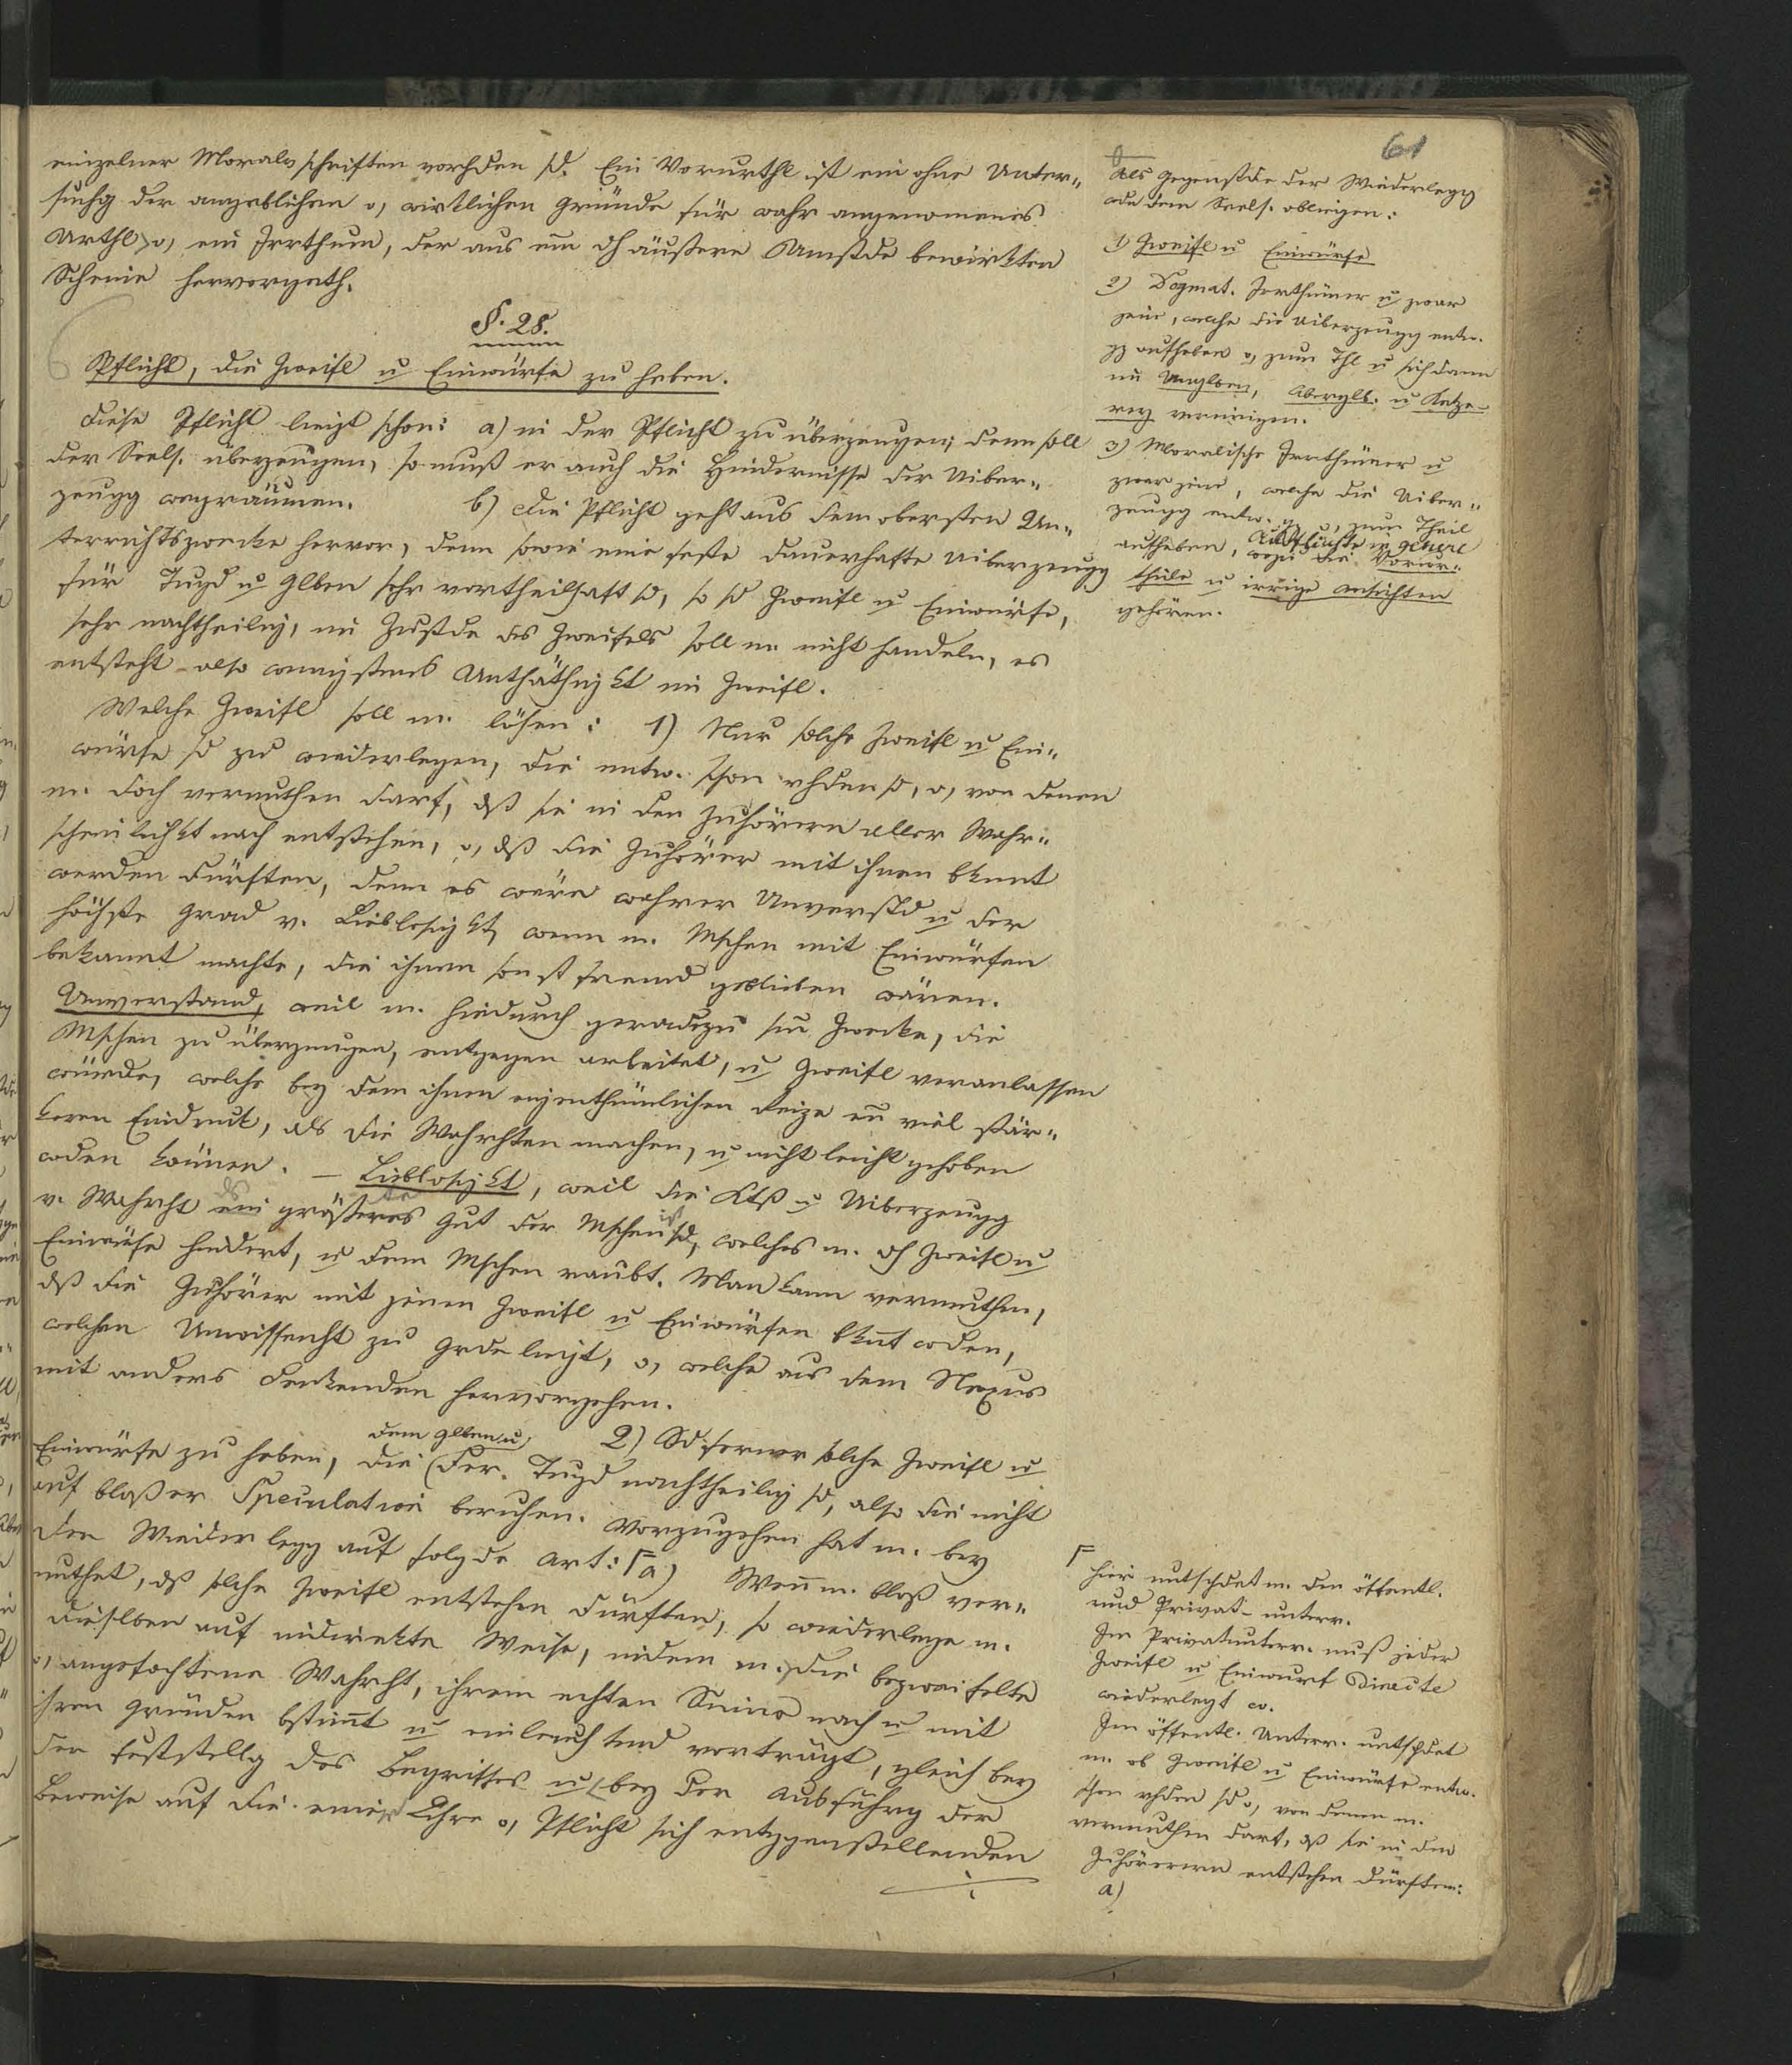 61
einzelner Moralvschriften vorhden sd. Ein Vorurthl ist ein ohne Unter-
suchg der angeblichen o, wirklichen Gründe für wahr angenomenes
Urthl o, ein Irrthum, der aus em dh äußere Umstde bewirkten
Scheine hervorgeth.
§. 28.
Pflicht, die Zweifl u Einwürfe zu heben.
Diese Pflicht liegt schon: a) in der Pflicht zu überzeugen; denn soll
der Seels. überzeugen, so muß er auch die Hindernisse der Uiber-
zeugg wegräumen. b) die Pflicht geht aus dem obersten Un-
terrichtszwecke hervor, denn sowie eine feste dauerhafte Uiberzeugg
für Tugd u Glben sehr vortheilhaft sd, so sd Zweifl u Einwürfe,
sehr nachtheilig, im Zustde des Zweifels soll m. nicht handeln, es
entsteht also wenigstens Unthäthigkt im Zweifl.
Welche Zweifl soll m. lösen: 1) Nur solche Zweifl u Ein-
würfe sd zu wiederlegen, die entw. schon vhden sd, o, von denen
m. doch vermuthen darf, dß sie in den Zuhörern aller Wahr-
scheinlichkt nach entstehen, o, dß die Zuhörer mit ihnen bkannt
werden dürften, denn es wäre wahrer Unverstd u der
höchste Grad v. Lieblosigkt, wenn m. Mschen mit Einwürfen
bekannt machte, die ihnen sonst fremd geblieben wären.
Unverstand, weil m. hiedurch geradezu sm Zwecke, die
Mschen zu überzeugen, entgegen arbeitet, u Zweifl veranlassen
würde, welche bey dem ihnen eigenthümlichen Reize en viel stär-
keren Eindruck, als die Wahrhten machen, u nicht leicht gehoben
wden können. – Lieblosigkt, weil die Ktß u Uiberzeugg
v. Wahrht ds größte Gut der Mschen ist, welches m. dh Zweifl u
Einwürfe hindert, u dem Mschen raubt. Man kann vermuthen,
dß die Zuhörer mit jenen Zweifl u Einwürfen bknt wden,
welchen Unwissenht zu Grde liegt, o, welche aus dem Nexus
mit anders Denkenden hervorgehen.
2) Sd ferner solche Zweifl u
Einwürfe zu heben, die (dem Glben u der Tugd nachtheilig sd, also die nicht
auf bloßer Speculation beruhen. Vorzugehen hat m. bey
der Wiederlegg auf folgde Art: a) Wenn m. bloß ver-
muthet, dß solche Zweifl entstehen dürften, so wiederlege m.
dieselben auf indirekte Weise, indem m. die bezweifelte
o, angefochtene Wahrht, ihrem echten Sinne nach u mit
ihren Gründen bstimt u einleuchtend vorträgt, gleich bey
der Feststellg des Begriffes u bey der Ausführg der
Beweise auf die einer Lehre o, Pflicht sich entggenstellenden
Als Gegenstde der Wiederlegg
wdn dem Seels. obliegen:
1) Zweifl u Einwürfe
2) Dogmat. Irrthümer u zwar
jene, welche die Uiberzeugg entw.
gz aufheben o, zum Thl u sich dann
im Unglben, Aberglb. u Ketze-
rey vereinigen.
3) Moralische Irrthümer u
zwar jene, welche die Uiber-
zeugg entw. gz o, zum Theil
aufheben, Ausflüchte in genere
wozu die Vorur-
theile u irrige Ansichten
gehören.
Hier untschdet m. den öffentl.
und Privat-unterr.
Im Privatunterr. muß jeder
Zweifl u Einwurf directe
wiederlegt w.
Im öffentl. Unterr. untschdet
m. ob Zweifl u Einwürfe entw.
schon vhden sd o, von denen m.
vermuthen darf, dß sie in den
Zuhörern entstehen dürften:
a)